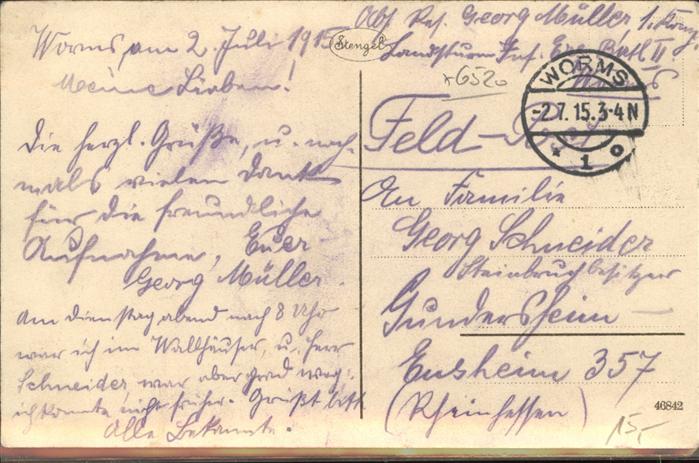 Worms, am 2. Juli 1915
Meine Lieben!
Die herzl. Grüße, u. noch-
mals vielen Dank
für die freundliche
Aufnahme, Euer
Georg Müller.
Am Dienstag abend nach 8 Uhr
war ich im Wallhäuser, u. Herr
Schneider war aber grad weg.
ich konnte nicht früher. Grüßt bitte
Alle Bekannte.
Stengel
Abs. Res. Georg Müller, 1. Komp.
Landsturm Inf. Ers. Batl II.
Worms
*6520
WORMS
-2.7.15.3-4N
* 1 o
Feld-Post
An Familie
Georg Schneider
Steinbruchbesitzer
Gundersheim
Ensheim 357
(Rheinhessen)
46842
15,-